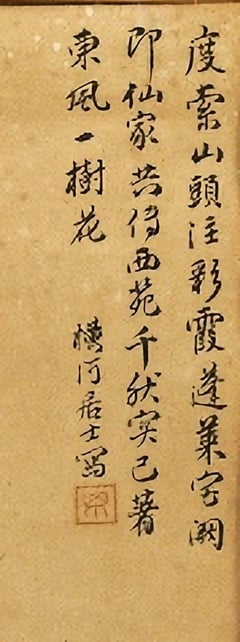 度索山頭注彩霞蓬萊宮闕
即仙家共傳西苑千秋實已著
東風一樹花
橫河居士寫